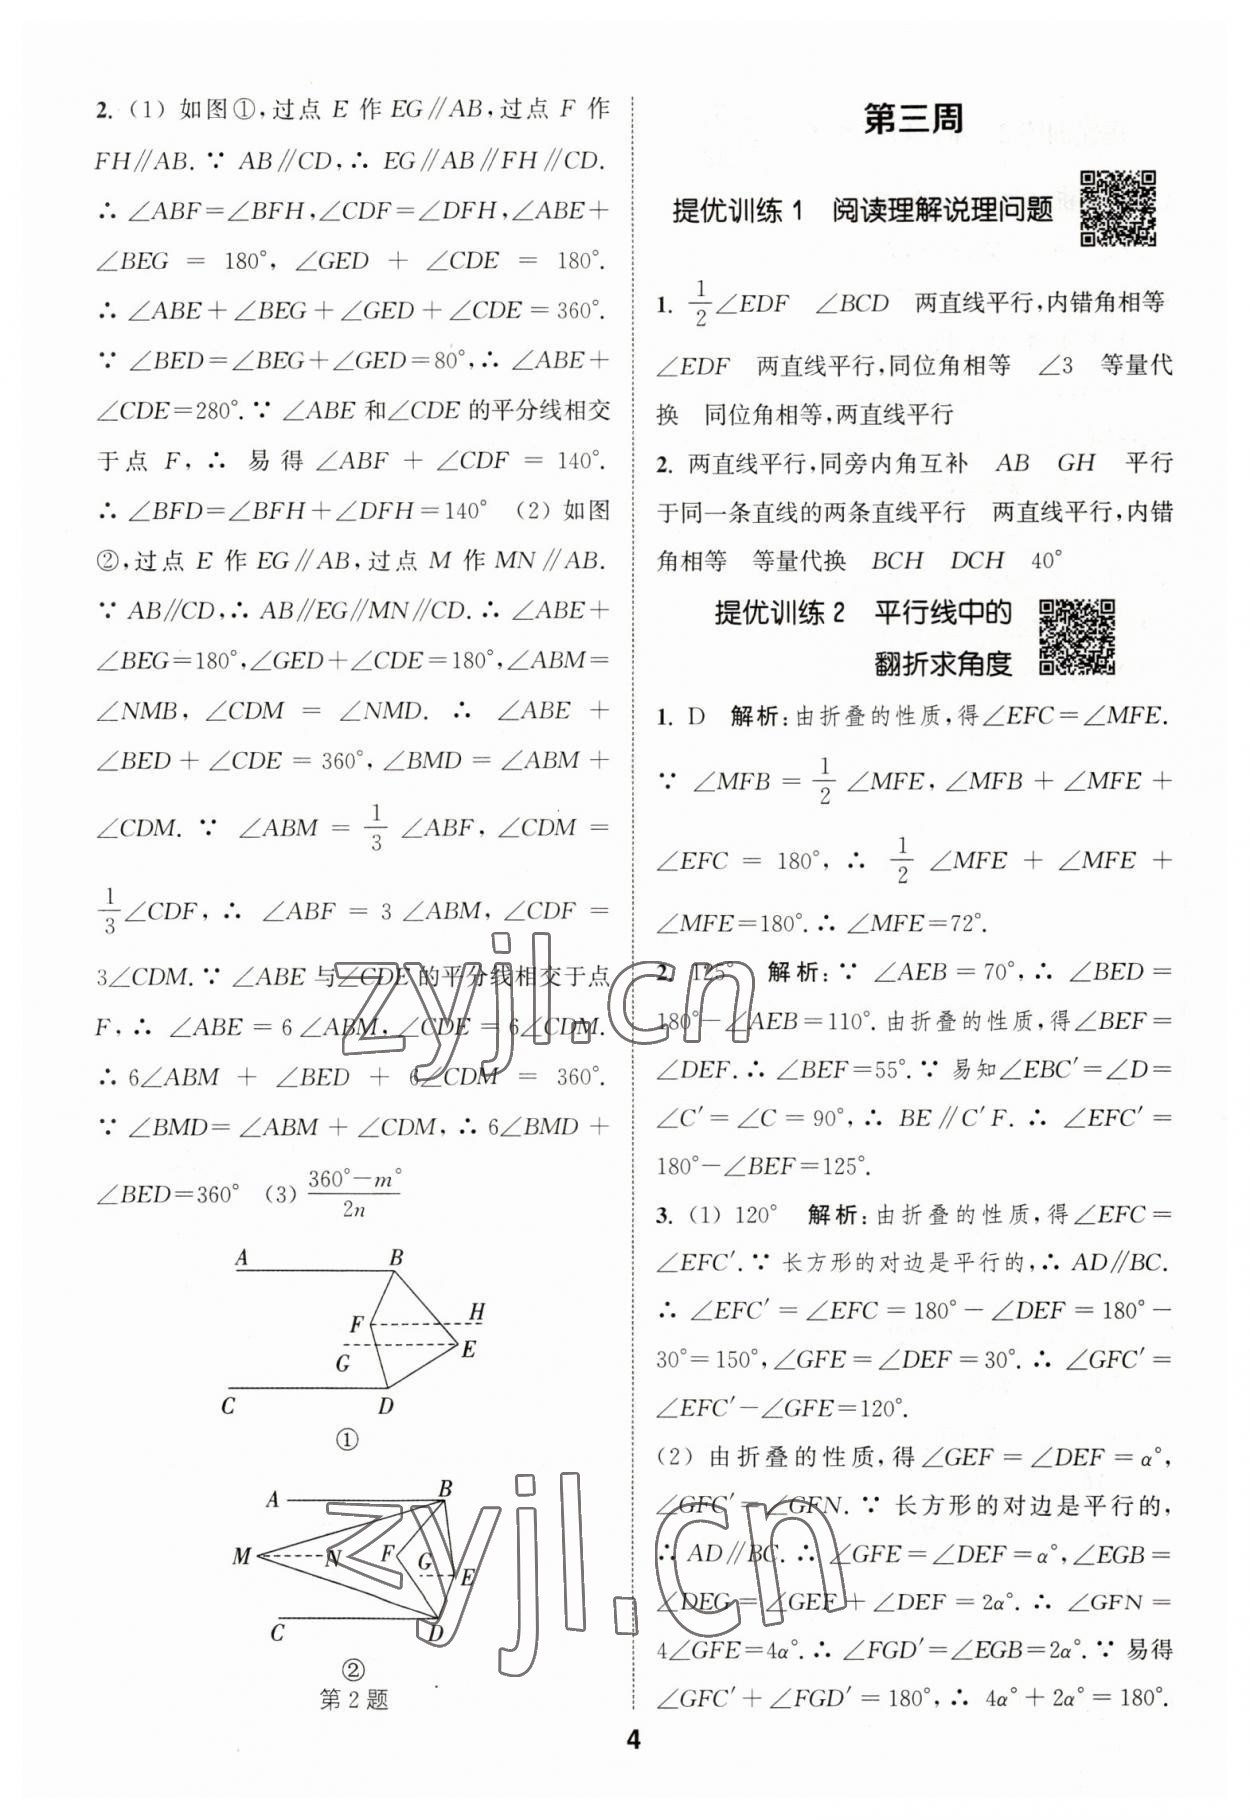 2. (1) 如图①,过点 E 作 EG∥AB,过点 F 作
FH∥AB. ∵ AB∥CD,∴ EG∥AB∥FH∥CD.
∴ ∠ABF=∠BFH,∠CDF=∠DFH,∠ABE+
∠BEG = 180°, ∠GED + ∠CDE = 180°.
∴ ∠ABE+∠BEG+∠GED+∠CDE=360°.
∵ ∠BED=∠BEG+∠GED=80°,∴ ∠ABE+
∠CDE=280°.∵ ∠ABE 和∠CDE 的平分线相交
于点 F,∴ 易得 ∠ABF + ∠CDF = 140°.
∴ ∠BFD=∠BFH+∠DFH=140° (2) 如图
②,过点 E 作 EG∥AB,过点 M 作 MN∥AB.
∵ AB∥CD,∴ AB∥EG∥MN∥CD.∴ ∠ABE+
∠BEG=180°,∠GED+∠CDE=180°,∠ABM=
∠NMB, ∠CDM = ∠NMD. ∴ ∠ABE +
∠BED+∠CDE=360°,∠BMD=∠ABM+
∠CDM. ∵ ∠ABM = 1/3 ∠ABF, ∠CDM =
1/3∠CDF, ∴ ∠ABF = 3 ∠ABM, ∠CDF =
3∠CDM.∵ ∠ABE 与∠CDE 的平分线相交于点
F, ∴ ∠ABE = 6 ∠ABM, ∠CDE = 6∠CDM.
∴ 6∠ABM + ∠BED + 6∠CDM = 360°.
∵ ∠BMD=∠ABM+∠CDM,∴ 6∠BMD+
∠BED=360° (3) (360°-m°)/2n
A B
F H
G E
C D
①
A B
M N F G E
C D
②
第 2 题
第三周
提优训练 1 阅读理解说理问题
1. 1/2∠EDF ∠BCD 两直线平行,内错角相等
∠EDF 两直线平行,同位角相等 ∠3 等量代
换 同位角相等,两直线平行
2. 两直线平行,同旁内角互补 AB GH 平行
于同一条直线的两条直线平行 两直线平行,内错
角相等 等量代换 BCH DCH 40°
提优训练 2 平行线中的
翻折求角度
1. D 解析:由折叠的性质,得∠EFC=∠MFE.
∵ ∠MFB = 1/2 ∠MFE, ∠MFB + ∠MFE +
∠EFC = 180°, ∴ 1/2 ∠MFE + ∠MFE +
∠MFE=180°.∴ ∠MFE=72°.
2. 125° 解析:∵ ∠AEB=70°,∴ ∠BED=
180°-∠AEB=110°.由折叠的性质,得∠BEF=
∠DEF.∴ ∠BEF=55°.∵ 易知∠EBC′=∠D=
∠C′=∠C=90°,∴ BE∥C′F. ∴ ∠EFC′=
180°-∠BEF=125°.
3. (1) 120° 解析:由折叠的性质,得∠EFC=
∠EFC′.∵ 长方形的对边是平行的,∴ AD∥BC.
∴ ∠EFC′=∠EFC=180°-∠DEF=180°-
30°=150°,∠GFE=∠DEF=30°.∴ ∠GFC′=
∠EFC′-∠GFE=120°.
(2) 由折叠的性质,得∠GEF=∠DEF=α°,
∠GFC′=∠GFN.∵ 长方形的对边是平行的,
∴ AD∥BC.∴ ∠GFE=∠DEF=α°,∠EGB=
∠DEG=∠GEF+∠DEF=2α°.∴ ∠GFN=
4∠GFE=4α°.∴ ∠FGD′=∠EGB=2α°.∵ 易得
∠GFC′+∠FGD′=180°,∴ 4α°+2α°=180°.
4
zyjl.cn
zyjl.cn